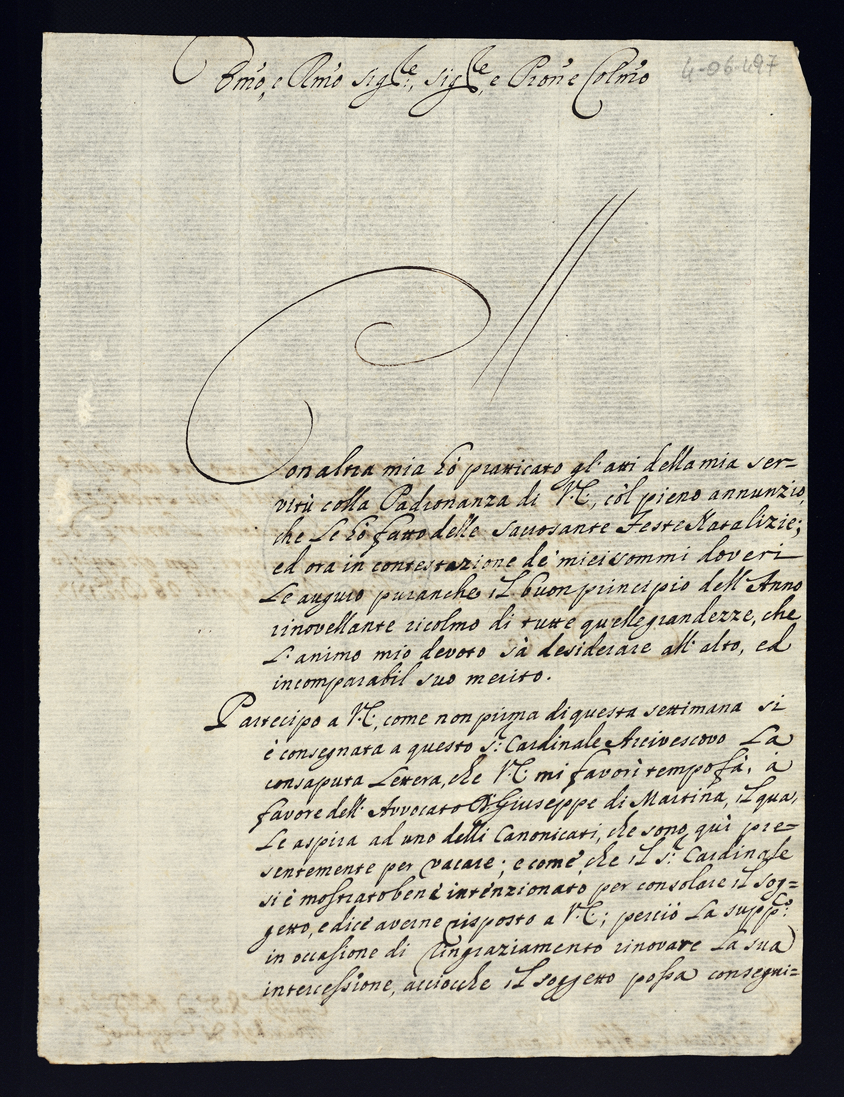 Emo, e Rmo Sigre, Sigre, e Pron e Colmo
4-06-497
Con altra mia hò pratticato gl'atti della mia ser=
vitù colla Padronanza di V.E., còl pieno annunzio,
che Le hò fatto delle Sacrosante Feste Natalizie;
ed ora in contestazione de' miei sommi doveri
Le auguro pur anche il buon principio dell'Anno
rinovellante ricolmo di tutte quelle grandezze, che
L'animo mio devoto sà desiderare all'alto, ed
incomparabil suo merito.
Partecipo a V.E., come non prima di questa settimana si
è consegnata a questo S.r Cardinale Arcivescovo La
consaputa Lettera, che V.E. mi favorì tempo fà, à
favore dell'Avvocato D. Giuseppe di Martina, il qua,
Le aspira ad uno delli Canonicati, che sono, quì pre=
sentemente per vacare; e come che il S.r Cardinale
si è mostrato bene intenzionato per consolare il sog=
getto, e dice averne risposto a V.E.; perciò La supp.o
in occasione di ringraziamento rinovare La sua
intercessione, acciocche il soggetto possa consegui=